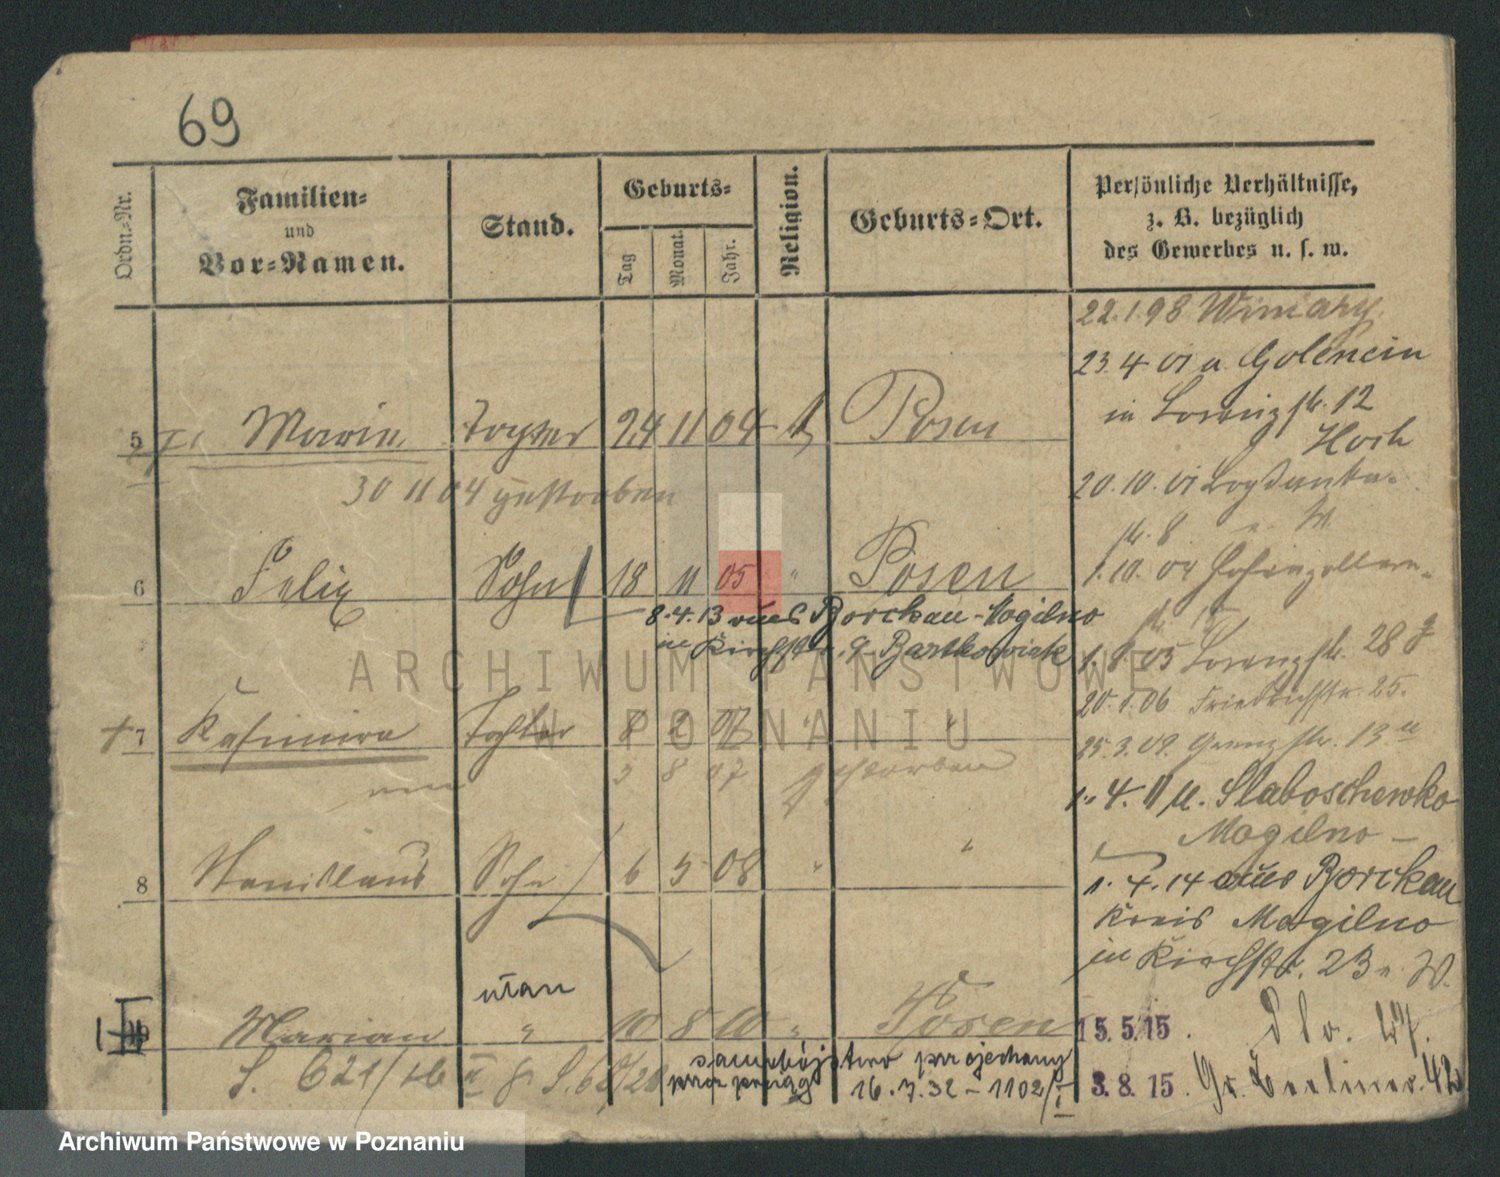 69
Ordn.-Nr.
Familien-
und
Vor-Namen.
Stand.
Geburts-
Tag
Monat.
Jahr.
Religion.
Geburts-Ort.
Persönliche Verhältnisse,
z. B. bezüglich
des Gewerbes u. s. w.
22.1.98 Winiary
23.4 01 a Golencin
in Lorenzstr. 12
Hoch
5 Marie Tochter 24 11 04 k Posen
30 11 04 gestorben
20.10.01
str. 8
6 Felix Sohn 18 11 05 " Posen
1.10.04 Hohenzollern-
8.4.13 aus Borckau-Mogilno
in Kirchstr. 9 Bartkowiak
05 Lorenzstr. 28
20. 06 Friedrichstr. 25.
† 7 Kasimira Tochter 8 2 07 " "
3 8 07 gestorben
25.3.09. Grenzstr. 13
1. 4. 11 n. Slaboschewko
Mogilno
8 Stanislaus Sohn 6 5 08 " "
1. 4. 14 aus Borckau
Kreis Mogilno
in Kirchstr. 23 W.
Marian " 10 8 10 " Posen
15.5.15.
samobójstwo przejechany
przez pociąg 16.7.32 – 1102/I
3.8.15. Gr. Berliner. 42
ARCHIWUM PAŃSTWOWE
W POZNANIU
Archiwum Państwowe w Poznaniu